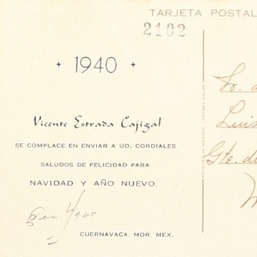 TARJETA POSTAL
2102
1940
Vicente Estrada Cajigal
SE COMPLACE EN ENVIAR A UD. CORDIALES
SALUDOS DE FELICIDAD PARA
NAVIDAD Y AÑO NUEVO.
CUERNAVACA, MOR. MEX.
Luis
Gte. de